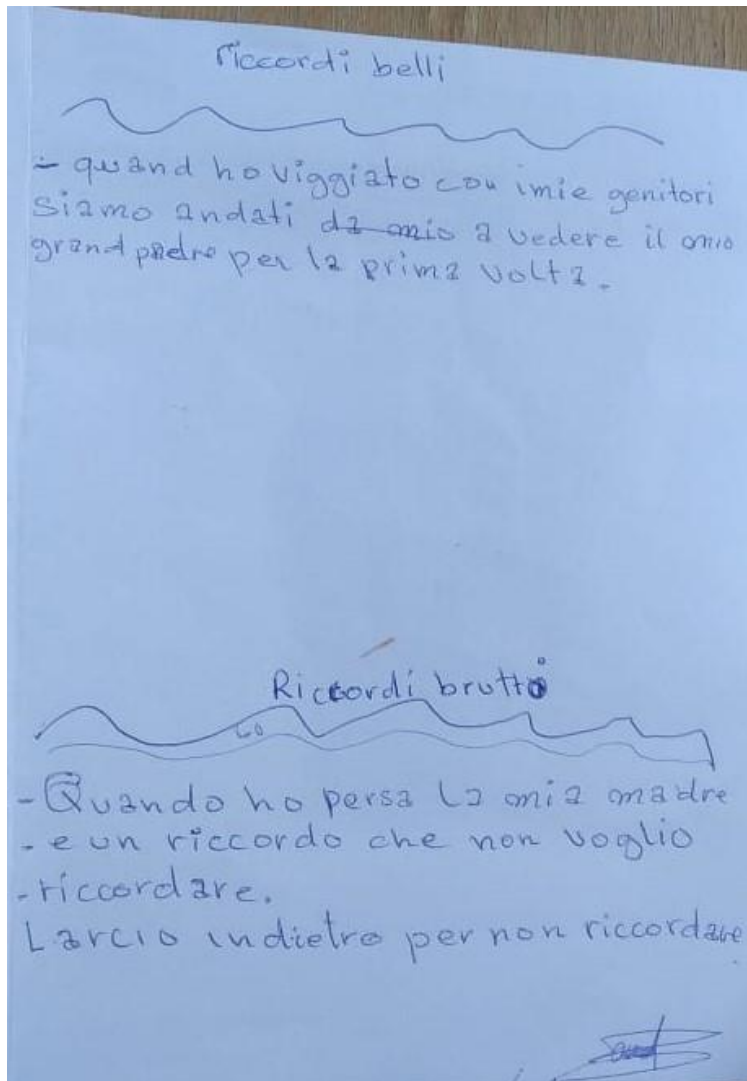 riccordi belli
- quand ho viggiato con imie genitori
siamo andati da mio a vedere il mio
grand padre per la prima volta.
Riccordi brutti
- Quando ho persa la mia madre
- e un riccordo che non voglio
- riccordare.
Larcio indietro per non riccordare